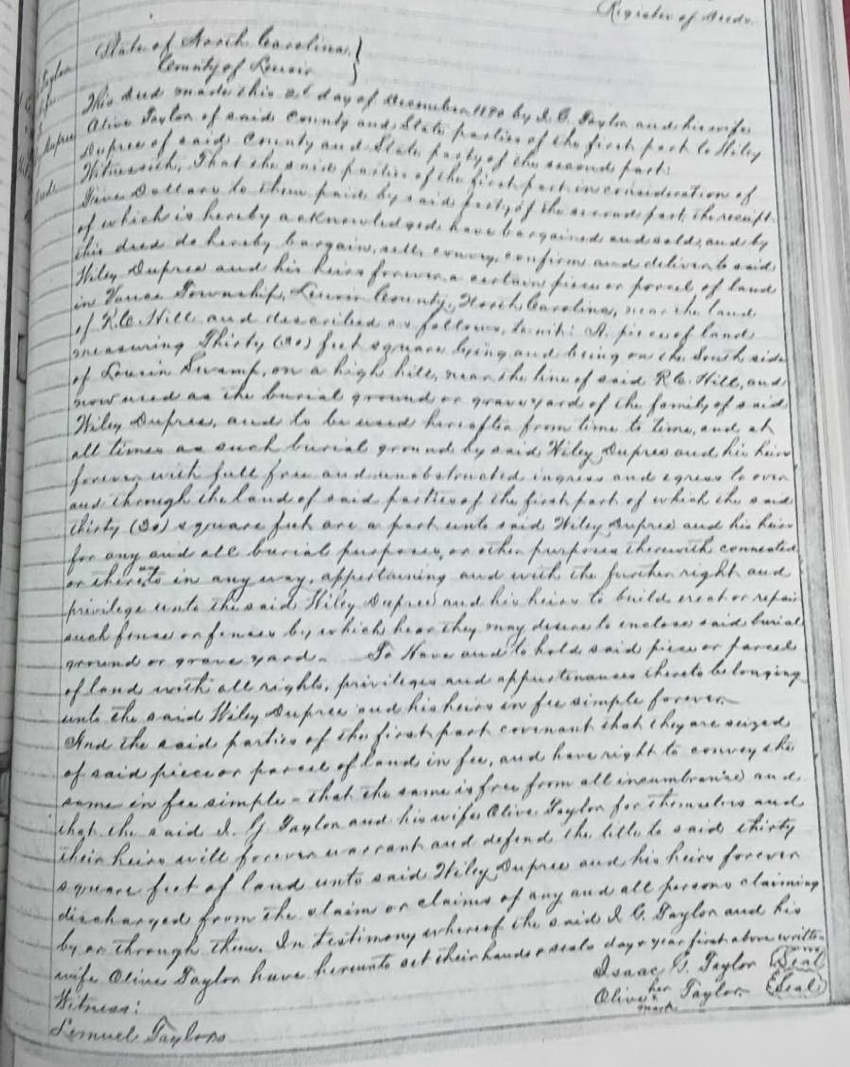 Register of Deeds.
State of North Carolina, }
County of Lenoir }
This deed made this 2d day of December, 1890 by I. G. Taylor and his wife
Olive Taylor of said County and State parties of the first part to Wiley
Dupree of said County and State party of the second part:
Witnesseth, That the said parties of the first part in consideration of
Five Dollars to them paid by said party of the second part, the receipt
of which is hereby acknowledged, have bargained and sold, and by
this deed do hereby bargain, sell, convey, confirm and deliver to said
Wiley Dupree and his heirs forever, a certain piece or parcel of land
in Vance Township, Lenoir County, North Carolina, near the land
of R.C. Hill and described as follows, to wit: A piece of land
measuring Thirty (30) feet square lying and being on the South side
of Swamp, on a high hill, near the line of said R.C. Hill, and
now used as the burial ground or graveyard of the family of said
Wiley Dupree, and to be used hereafter from time to time, and at
all times as such burial ground by said Wiley Dupree and his heirs
forever with full free and unobstructed ingress and egress to over
and through the land of said parties of the first part of which the said
thirty (30) square feet are a part unto said Wiley Dupree and his heirs
for any and all burial purposes, or other purposes therewith connected
or thereto in any way, appertaining and with the further right and
privilege unto the said Wiley Dupree and his heirs to build erect or repair
such fence or fences by which he or they may desire to enclose said burial
ground or grave yard. To Have and to hold said piece or parcel
of land with all rights, privileges and appurtenances thereto belonging
unto the said Wiley Dupree and his heirs in fee simple forever.
And the said parties of the first part covenant that they are seized
of said piece or parcel of land in fee, and have right to convey the
same in fee simple - that the same is free from all incumbrance and
that the said I. G. Taylor and his wife Olive Taylor for themselves and
their heirs will forever warrant and defend the title to said thirty
square feet of land unto said Wiley Dupree and his heirs forever
discharged from the claim or claims of any and all persons claiming
by or through them. In testimony whereof the said I. G. Taylor and his
wife Olive Taylor have hereunto set their hands & seals day & year first above written
Isaac G. Taylor (Seal)
Witness: Olive her x mark Taylor. (Seal)
Lemuel Taylor